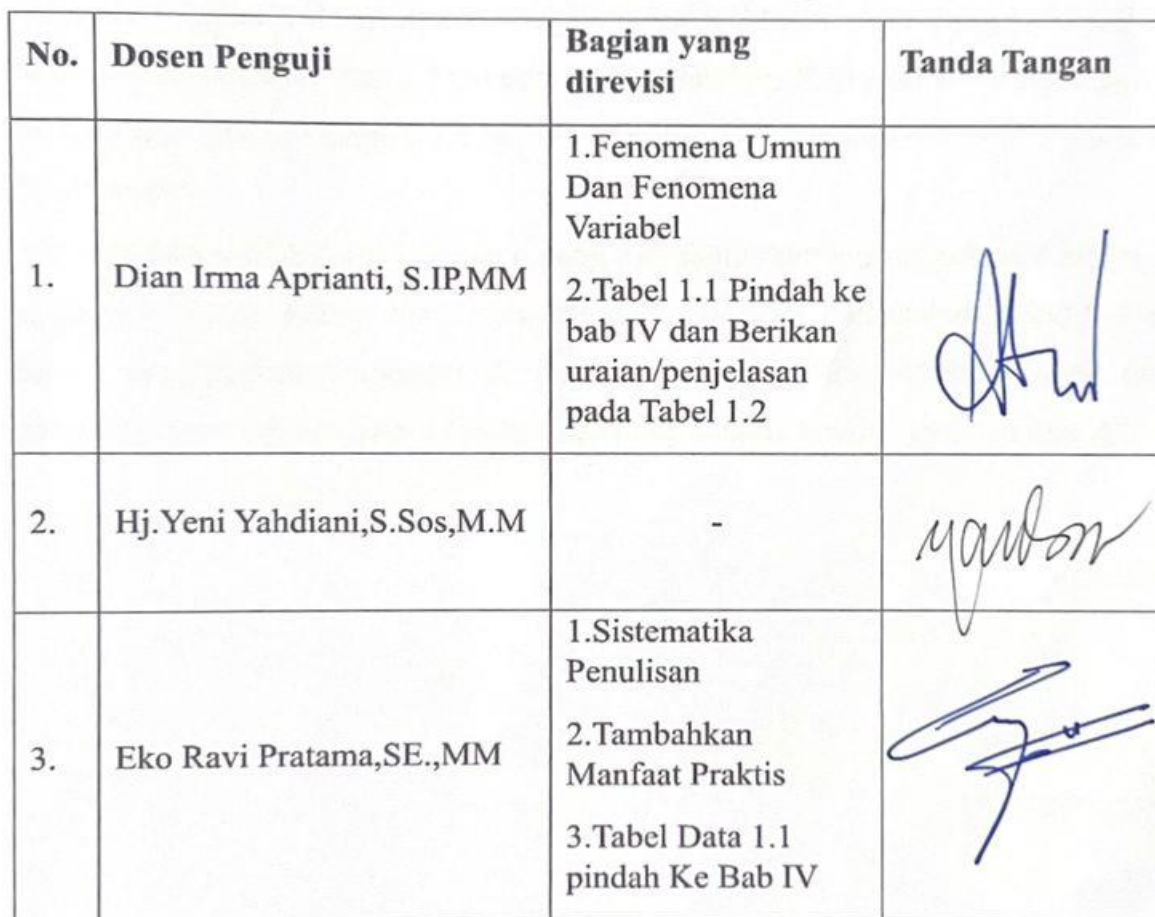 No. Dosen Penguji Bagian yang direvisi Tanda Tangan
1. Dian Irma Aprianti, S.IP,MM
1.Fenomena Umum
Dan Fenomena
Variabel
2.Tabel 1.1 Pindah ke
bab IV dan Berikan
uraian/penjelasan
pada Tabel 1.2
2. Hj.Yeni Yahdiani,S.Sos,M.M -
3. Eko Ravi Pratama,SE.,MM
1.Sistematika
Penulisan
2.Tambahkan
Manfaat Praktis
3.Tabel Data 1.1
pindah Ke Bab IV